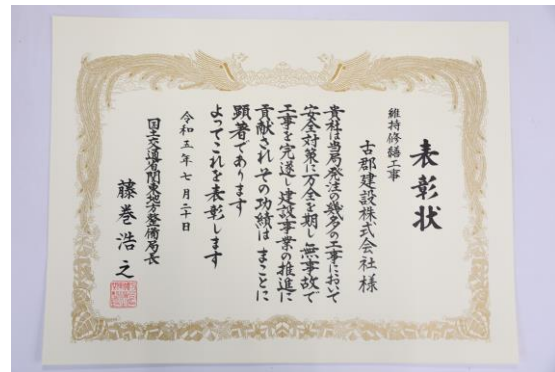 表彰状
維持修繕工事
古郡建設株式会社様
貴社は当局発注の幾多の工事において
安全対策に万全を期し無事故で
工事を完遂し建設事業の推進に
貢献されその功績はまことに
顕著であります
よってこれを表彰します
令和五年七月二十日
国土交通省関東地方整備局長
藤巻浩之